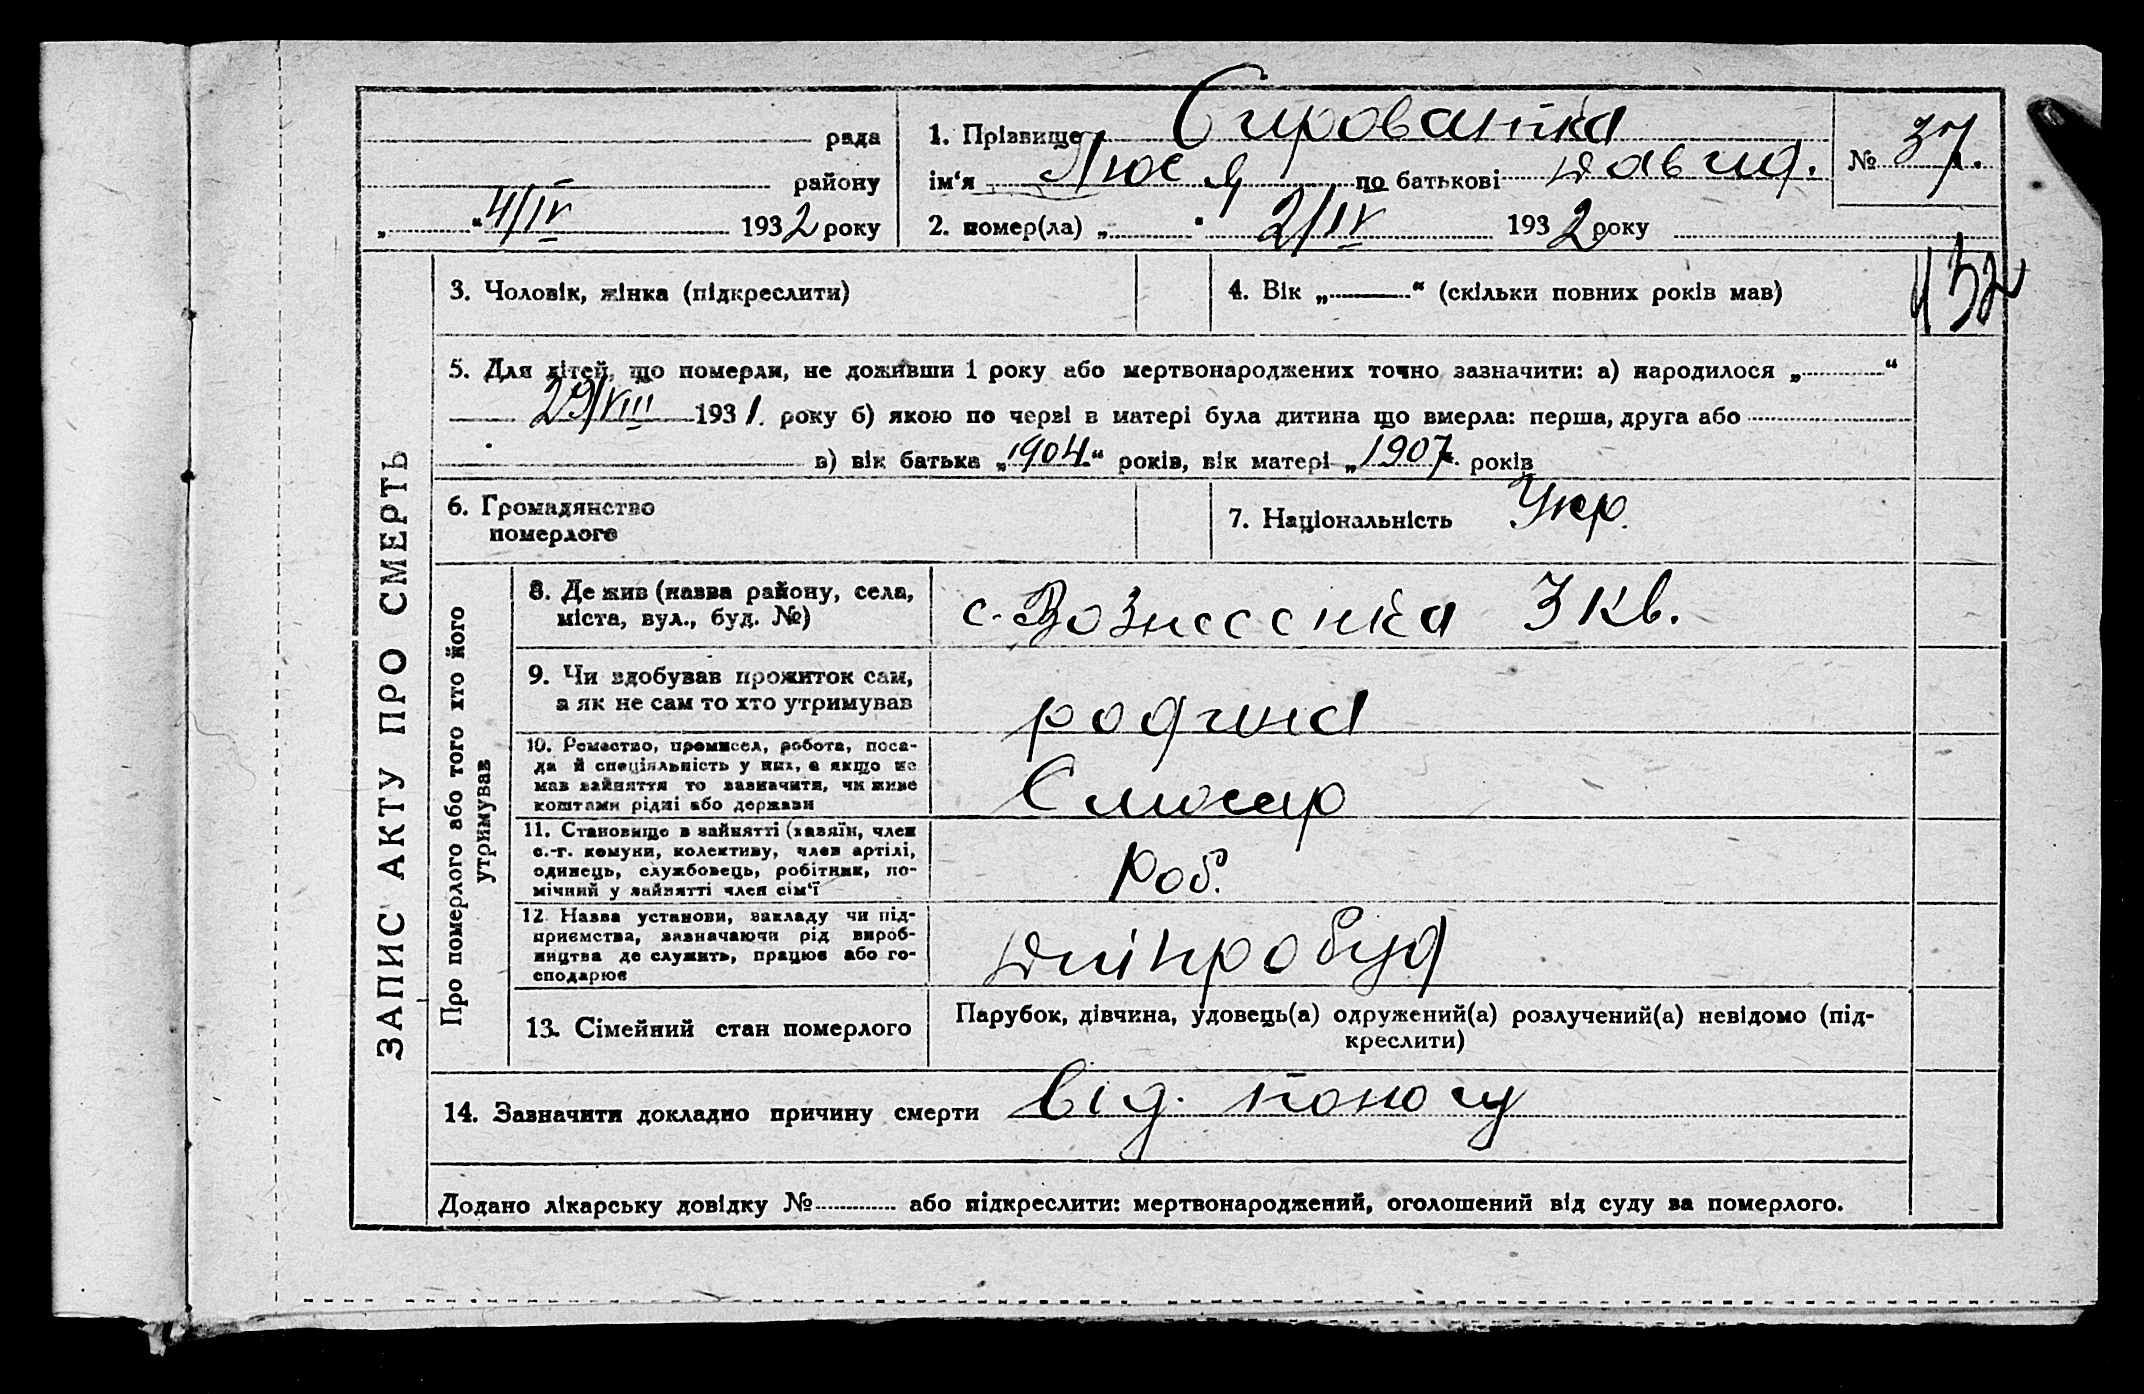 рада
району
„ “ 4/IV 1932 року
1. Прізвище Сироватка
ім‘я Люся по батькові Давид.
2. помер(ла) „ “ 2/IV 1932 року
№ 37.
132
ЗАПИС АКТУ ПРО СМЕРТЬ
3. Чоловік, жінка (підкреслити)
4. Вік „ “ (скільки повних років мав)
5. Для дітей, що померли, не доживши 1 року або мертвонароджених точно зазначити: а) народилося „ “
29/VIII 1931. року б) якою по черзі в матері була дитина що вмерла: перша, друга або
в) вік батька „1904.“ років, вік матері „1907. років
6. Громадянство
померлого
7. Національність Укр.
Про померлого або того хто його
утримував
8. Де жив (назва району, села,
міста, вул., буд. №)
с. Вознесенка 3 кв.
9. Чи здобував прожиток сам,
а як не сам то хто утримував
родина
10. Ремество, промисел, робота, поса-
да й спеціяльність у них, а якщо не
мав зайняття то зазначити, чи живе
коштами рідні або держави
Слюсар
11. Становище в зайнятті (хазяїн, член
с.-г. комуни, колективу, член артілі,
одинець, службовець, робітник, по-
мічний у зайнятті член сім‘ї
Роб.
12 Назва установи, закладу чи під-
приємства, зазначаючи рід вироб-
ництва де служить, працює або го-
сподарює
Дніпробуд
13. Сімейний стан померлого
Парубок, дівчина, удовець(а) одружений(а) розлучений(а) невідомо (під-
креслити)
14. Зазначити докладно причину смерти від. поносу
Додано лікарську довідку № або підкреслити: мертвонароджений, оголошений від суду за померлого.